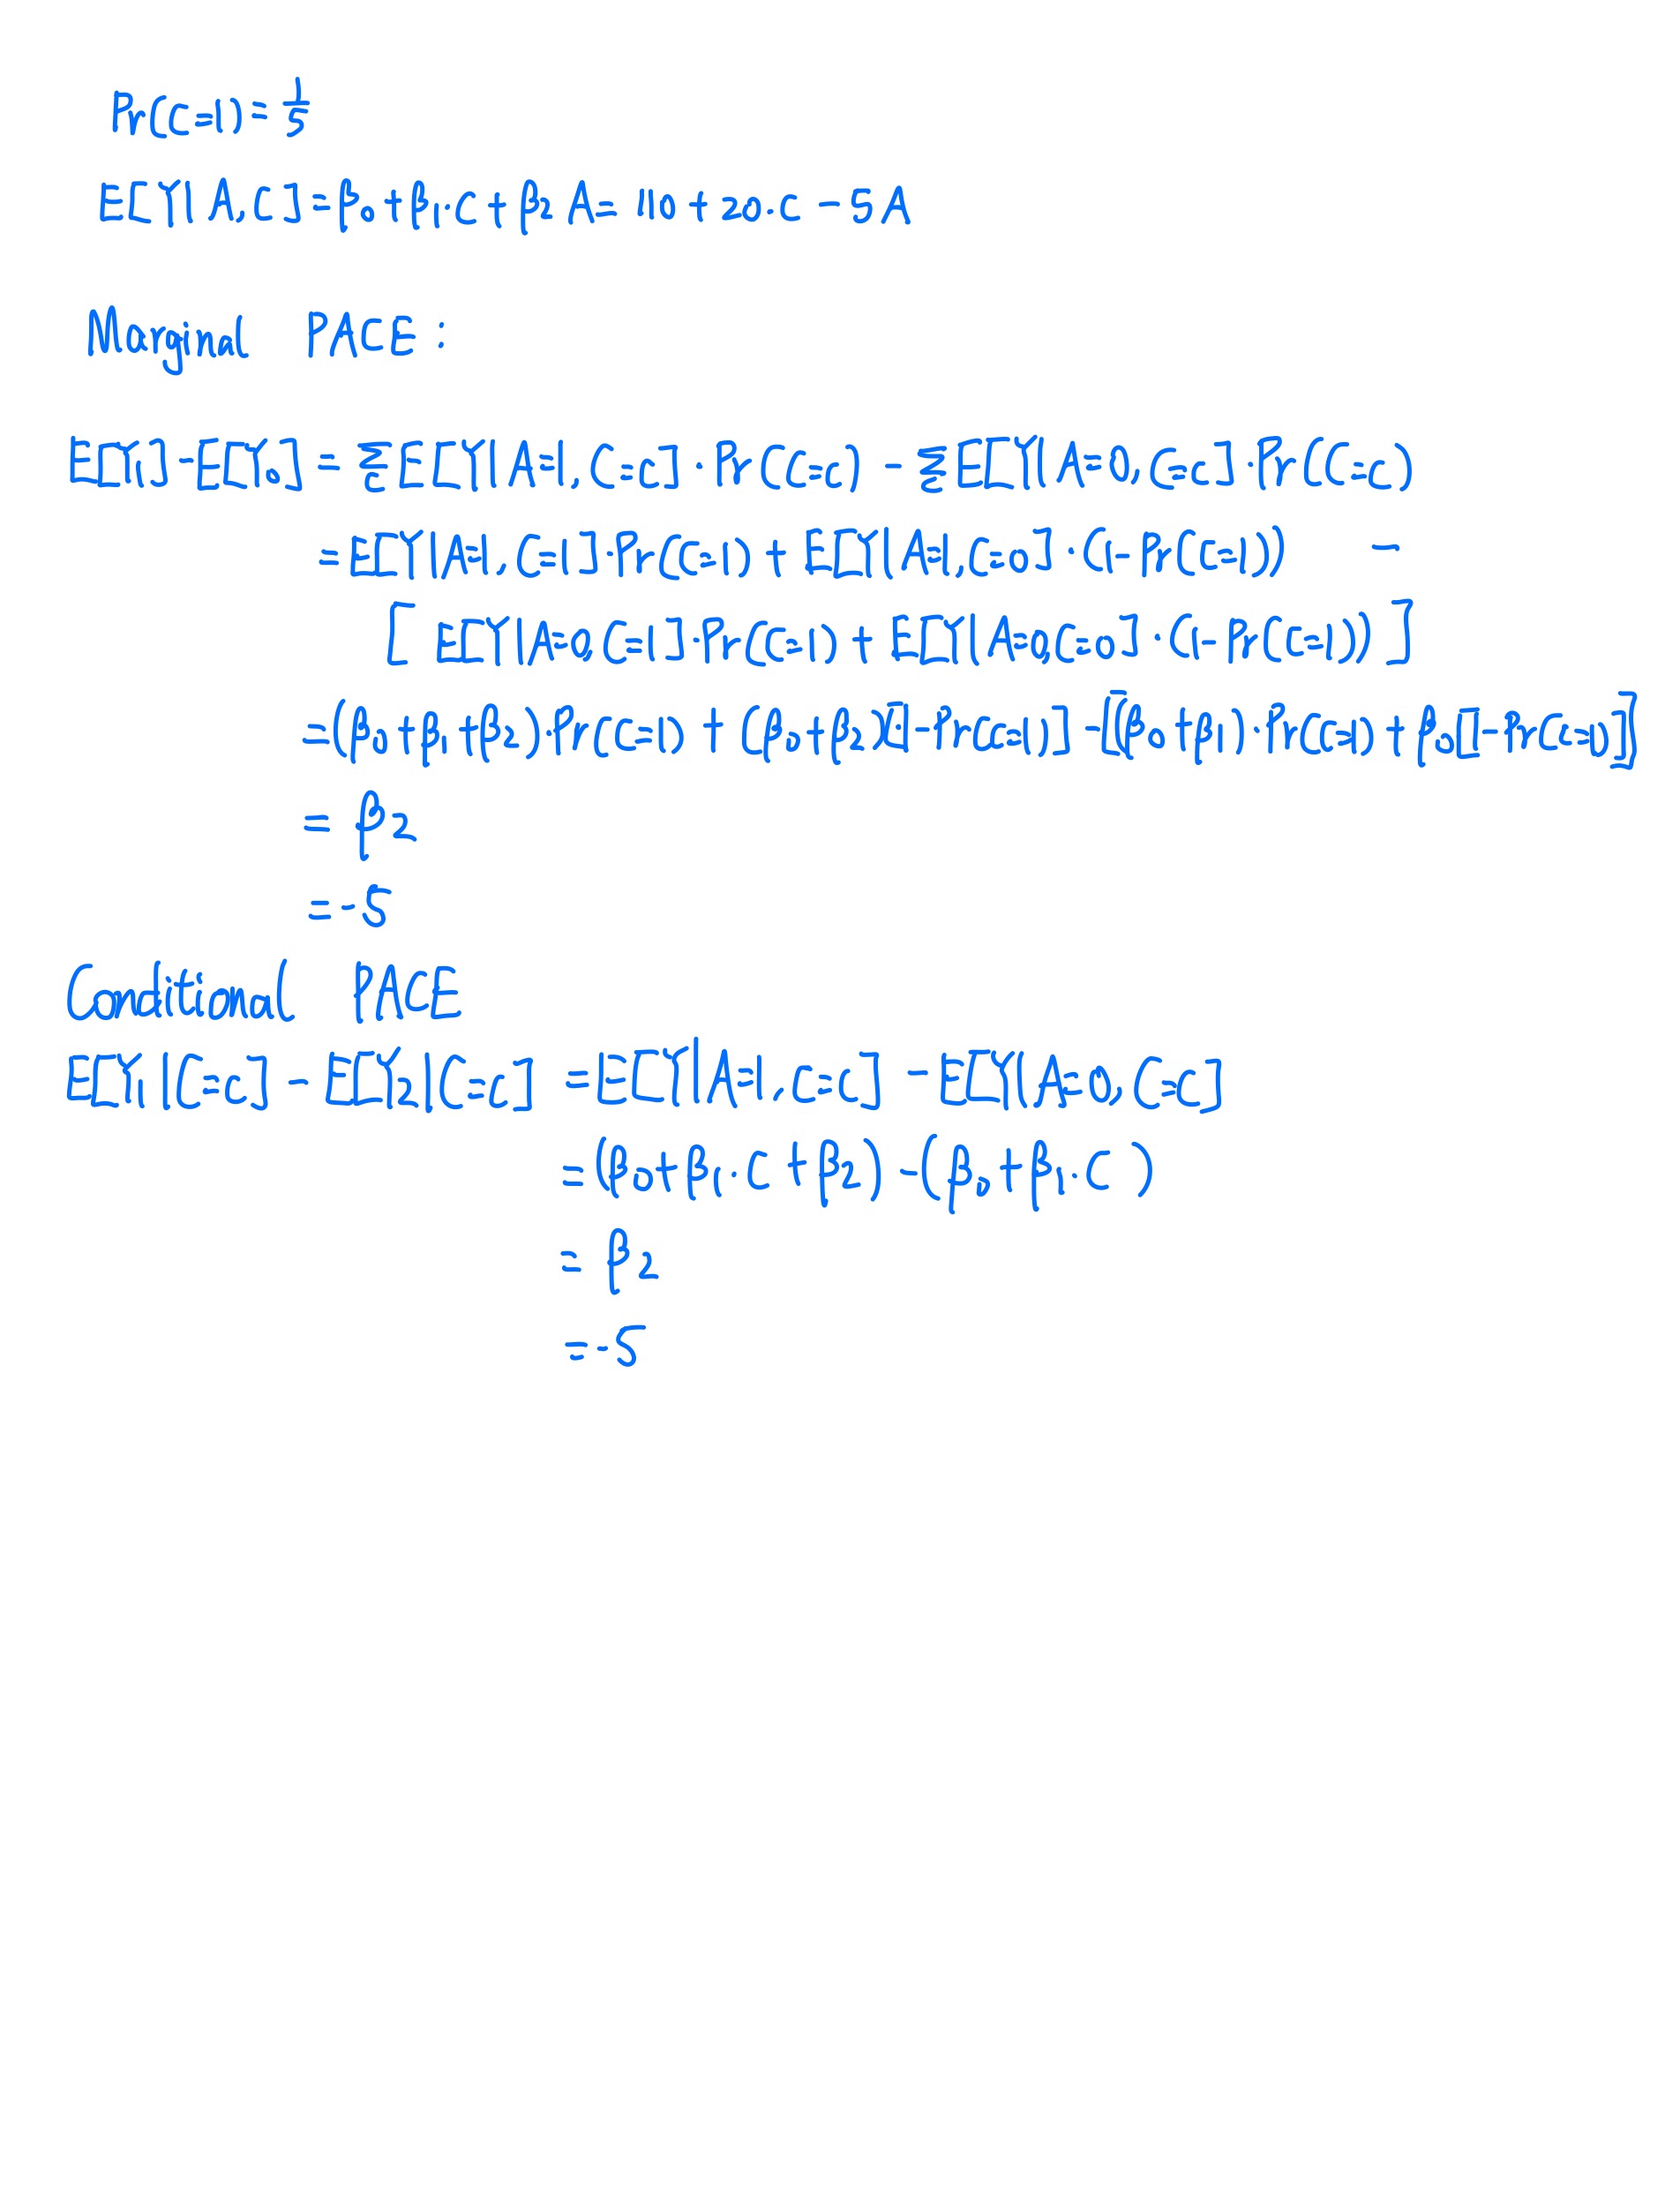 Pr(C=1)=1/5
E[Y|A,C]=β0+β1·C+β2A=110+20·C-5A
Marginal PACE:
E[Y1]-E[Y0]=∑c E[Y|A=1,C=c]·Pr(C=c)-∑c E[Y|A=0,C=c]·Pr(C=c)
=E[Y|A=1,C=1]·Pr(C=1)+E[Y|A=1,C=0]·(1-Pr(C=1)) -
[E[Y|A=0,C=1]·Pr(C=1)+E[Y|A=0,C=0]·(1-Pr(C=1))]
=(β0+β1+β2)·Pr(C=1)+(β0+β2)[1-Pr(C=1)]-[(β0+β1)·Pr(C=1)+β0[1-Pr(C=1)]]
=β2
=-5
Conditional PACE
E[Y1|C=c]-E[Y2|C=c] =E[Y|A=1,C=c]-E[Y|A=0,C=c]
=(β0+β1·C+β2)-(β0+β1·C)
=β2
=-5